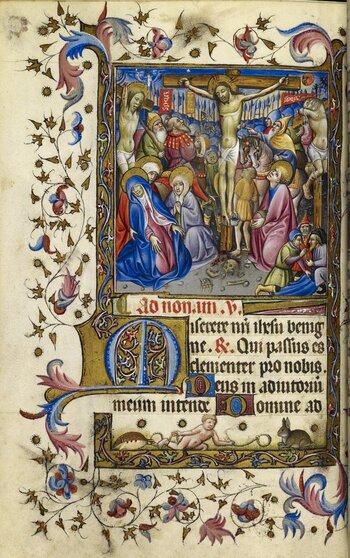 Ad nonam. V.
Miserere nr̄i ihesu benig
ne. R. Qui passus es
clementer pro nobis.
Deus in adiutoriū
meum intende Domine ad